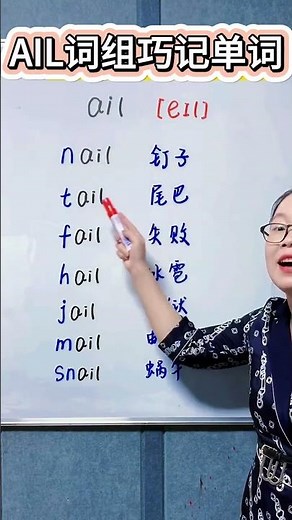 AIL词组巧记单词
ail [eIl]
nail 钉子
tail 尾巴
fail 失败
hail 冰雹
jail
mail
snail 蜗牛